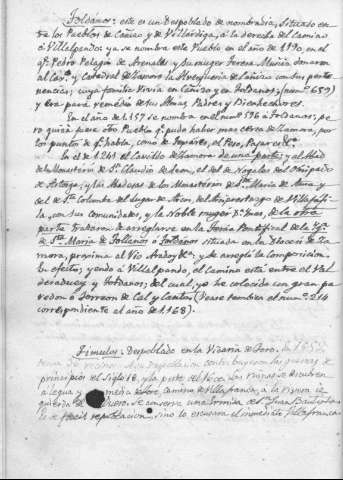 Foldanos: este es un Despoblado de nombradia, situado en-
tre los Pueblos de Cañizo y de Villardiga, á la derecha del camino
á Villalpando: ya se nombra este Pueblo en el año de 1190, en el
qe. Pedro Pelagin de Arenales y su muger Teresa Muñiz donaron
al Car.º y Catedral de Zamora la de con sus perte-
nencias; cuya familia vivia en Cañizo y en Foldanos, (num.º 659)
y era para remedio de sus Almas, Padres y Bienhechores.
En el año de 1157 se nombra en el num.º 596 á Foldanos; pe-
ro quizá fuese otro Pueblo qe. pudo haber mas cerca de Zamora, por
los puntos de qe. habla, como de el Peso, &c.
En el de 1241 el Cavildo de Zamora de una parte; y el Abad
de la Monasterio de Sn. Claudio de Leon, el del de Nogales del Obispado
de Astorga, y las Abadesas de los Monasterios de Sta. Maria de y
del de Sta. Colomba del lugar de del de Villafafi-
la, con sus Comunidades, y la Noble muger Da. Ines, de la otra
parte trataron de arreglarse en la Tercia Pontifical de la Ygª.
de Sta. Maria de Follanos ó Foldanos situada en la Diocesi de Za-
mora, proxima al Rio Aradoy &c.; y se arregló la composicion.
En efecto, yendo á Villalpando, el camino está entre el Val-
deraduey y Foldanos, del cual yo he colocido un gran pa-
redon ó Torreon de Cal y Cantos (Vease tambien el num.º 214
correspondiente al año de 1168).
Fimulos: Despoblado en la Vicaria de Toro. En 1652
tenia 20 vecinos. Su despoblacion con las guerras de
principios del Siglo 18, y la peste del Sus ruinas se descubren
á legua y media de Toro, camino de Villafranca, á la rivera iz-
quierda del Duero. Se conserva una Ermita de Sn. Juan Bautista
Es facil repoblacion, sino lo escusara el inmediato Villafranca